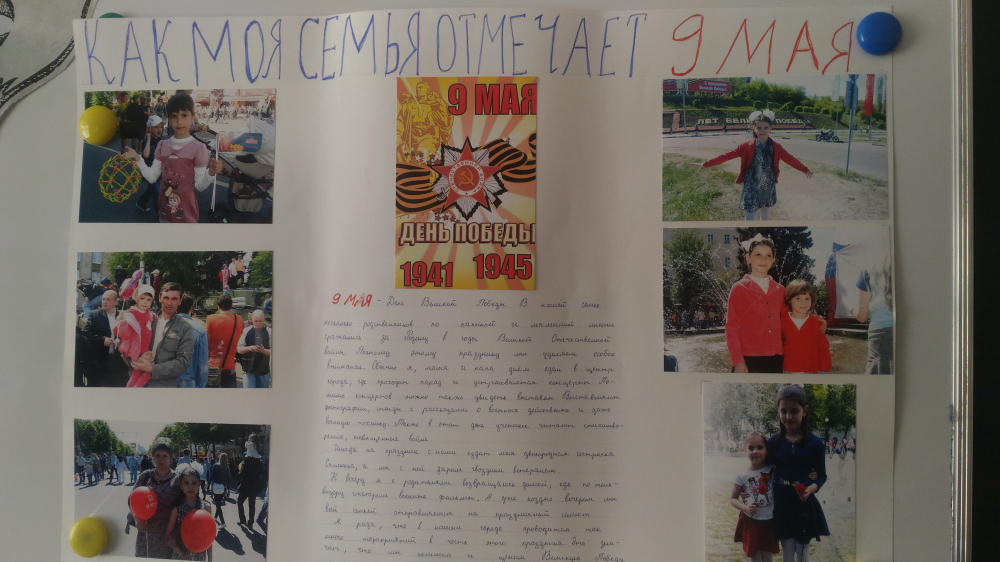 КАК МОЯ СЕМЬЯ ОТМЕЧАЕТ 9 МАЯ
9 МАЯ
ДЕНЬ ПОБЕДЫ
1941 1945
ЛЕТ ВЕЛИКОЙ ПОБЕДЫ
9 МАЯ - День Великой Победы. В нашей семье
родственников по папиной и маминой линии
сражались за Родину в годы Великой Отечественной
войны. Поэтому этому празднику мы уделяем особое
внимание. Обычно я, мама и папа идём в центр
города, где проходит парад и устраиваются концерты. По-
мимо концертов можно также увидеть выставки. Выставляют
фотографии, стенды с рассказами о военных действиях и даже
военную технику. Также в этот день ученики читают стихотво-
рения, посвящённые войне.
Иногда на праздник с нами ездит моя двоюродная сестричка
и мы с ней дарим гвоздики ветеранам.
К вечеру я с родителями возвращаюсь домой, где по теле-
визору смотрим военные фильмы. А уже поздно вечером мы
всей семьёй отправляемся на праздничный салют.
Я рада, что в нашем городе проводится так
много мероприятий в честь этого праздника. Это зна-
чит, что мы помним и ценим Великую Победу